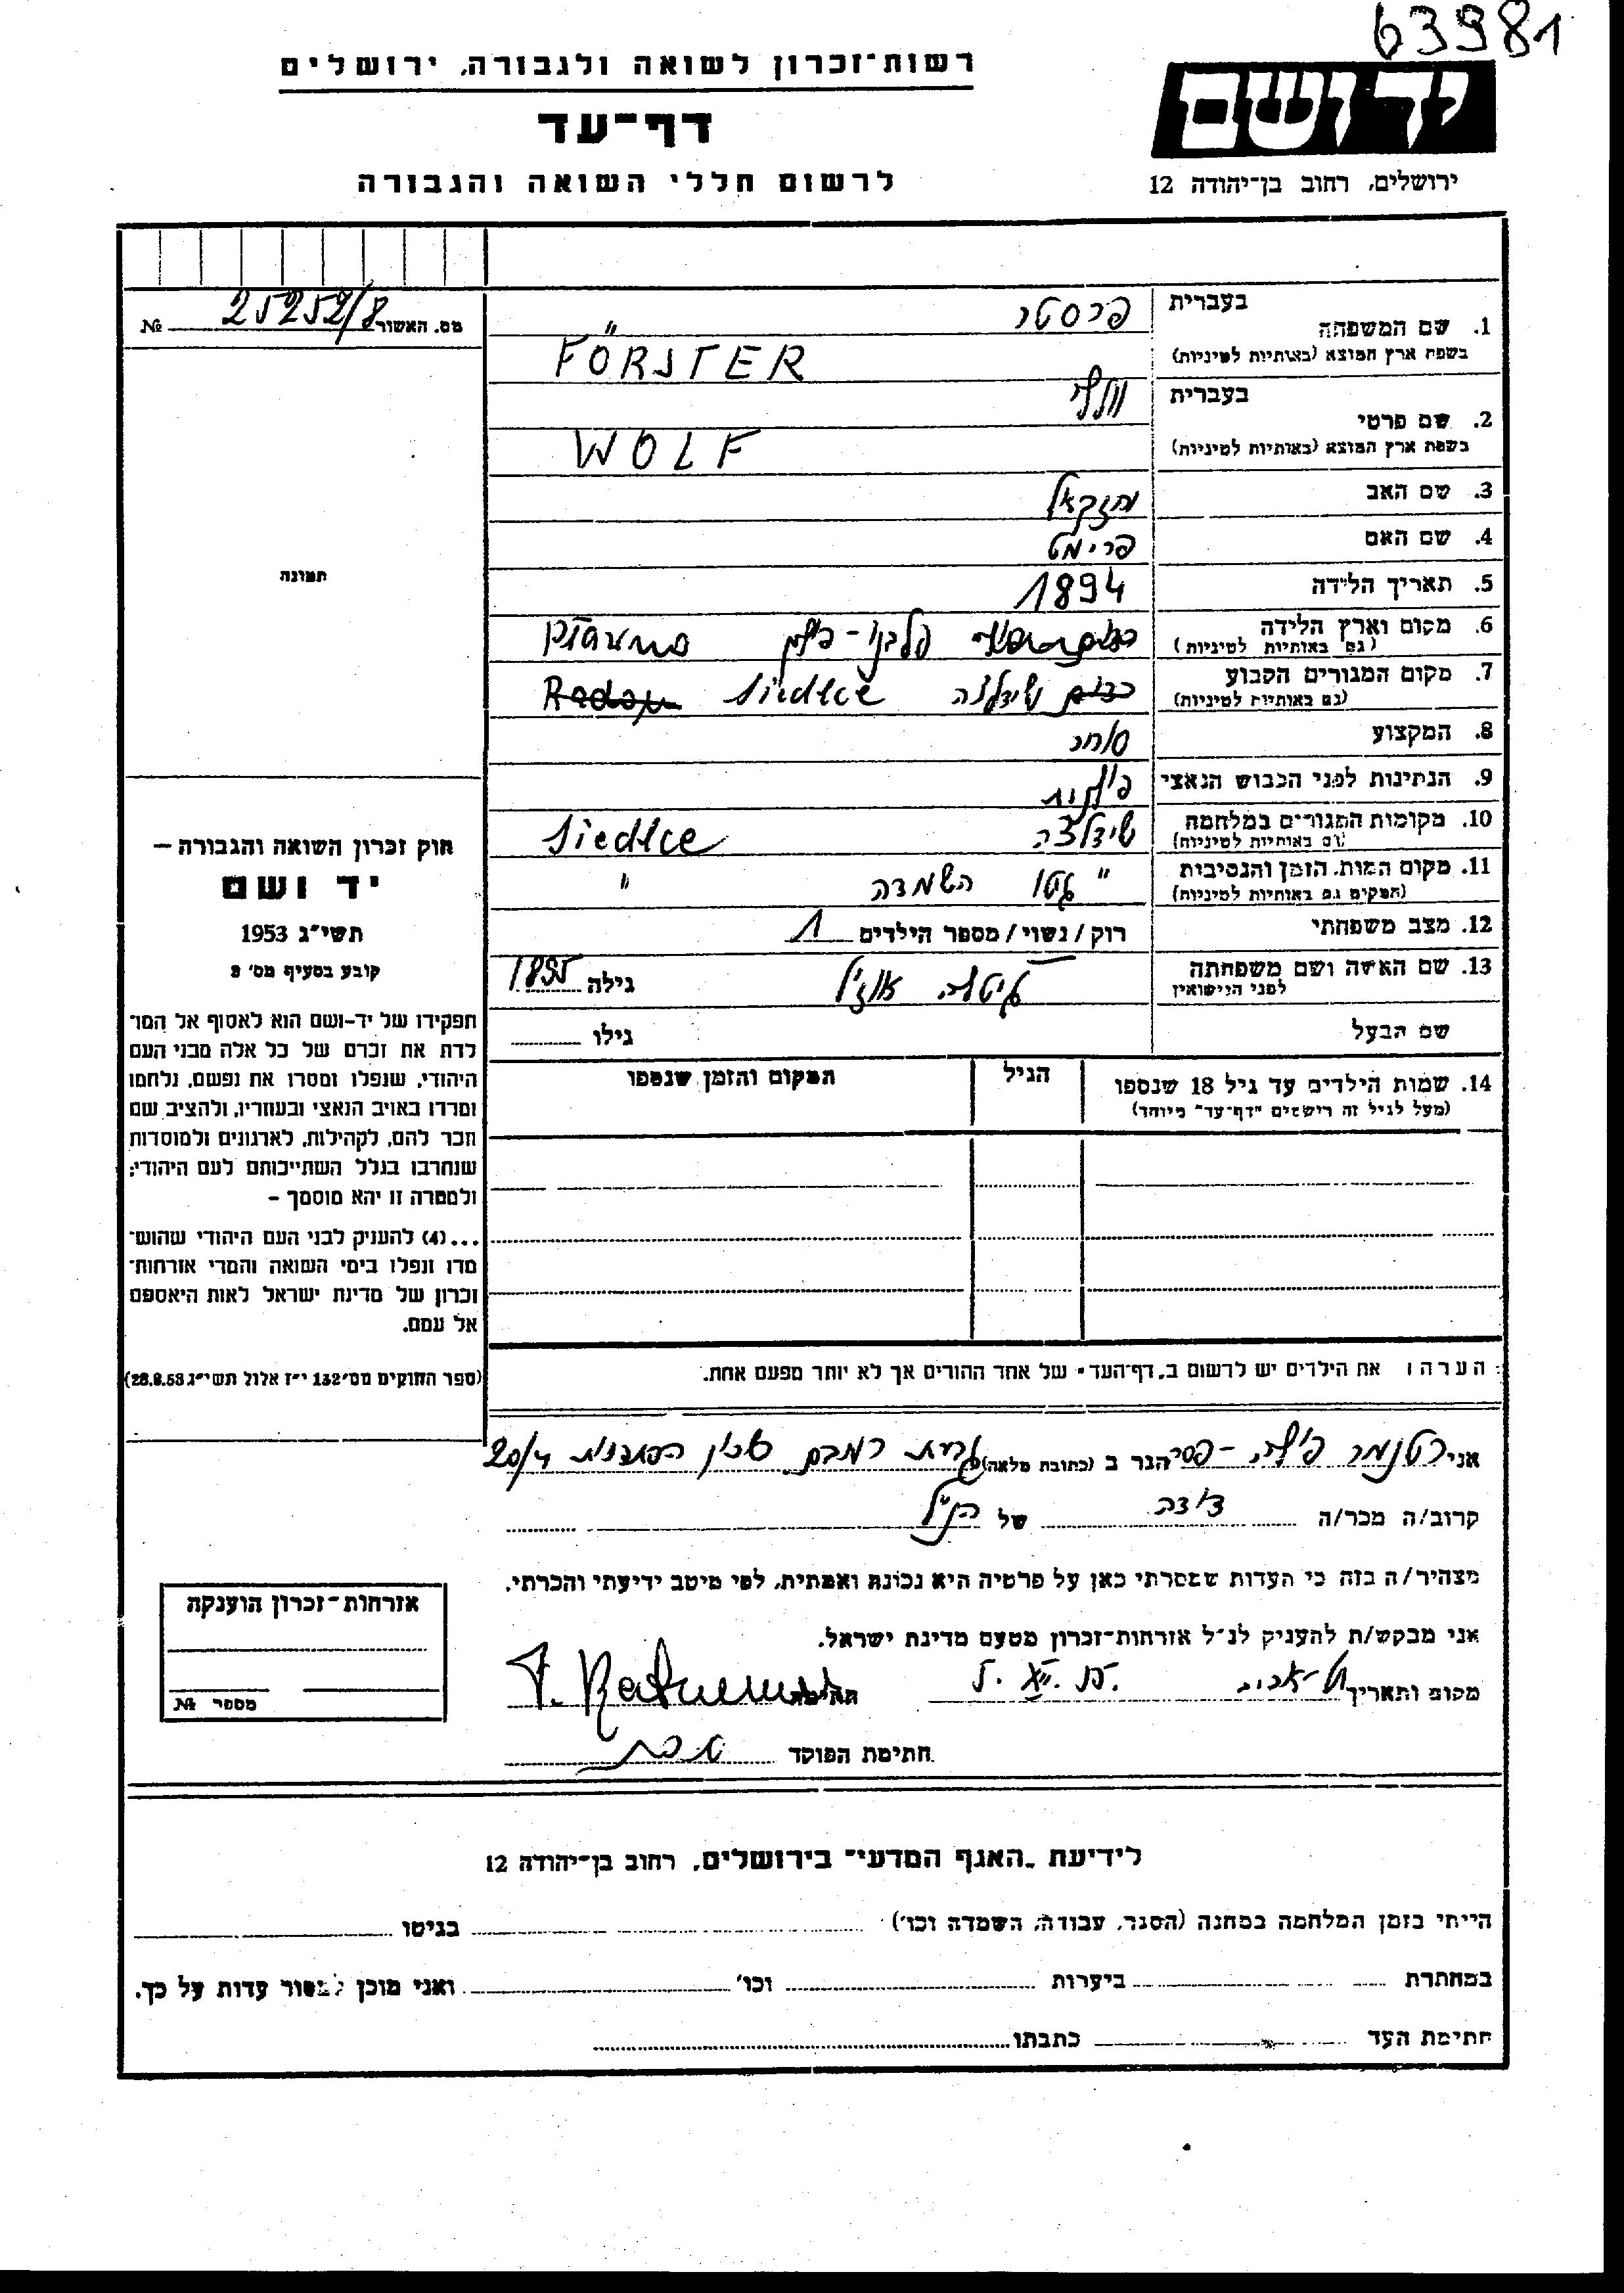 63981
רשות־זכרון לשואה ולגבורה, ירושלים
יד ושם
דף־עד
ירושלים, רחוב בן־יהודה 12
לרשום חללי השואה והגבורה
מס. האשור 25252/8 №
1. שם המשפחה בעברית פרסטר
בשפת ארץ המוצא (באותיות לטיניות) FÖRSTER
2. שם פרטי בעברית וולף
בשפת ארץ המוצא (באותיות לטיניות) WOLF
3. שם האב יחזקאל
4. שם האם פרימט
5. תאריך הלידה 1894
6. מקום וארץ הלידה
(גם באותיות לטיניות)
7. מקום המגורים הקבוע שידלצה Siedlce
(גם באותיות לטיניות)
8. המקצוע סוחר
9. הנתינות לפני הכבוש הנאצי פולנית
10. מקומות המגורים במלחמה שידלצה Siedlce
(גם באותיות לטיניות)
11. מקום המות, הזמן והנסיבות " גטו השמדה "
(המקום גם באותיות לטיניות)
12. מצב משפחתי רוק / נשוי / מספר הילדים 1
13. שם האשה ושם משפחתה גילה 1895
לפני הנישואין
שם הבעל גילו
14. שמות הילדים עד גיל 18 שנספו הגיל המקום והזמן שנספו
(מעל לגיל זה רושמים "דף־עד" מיוחד)
תמונה
חוק זכרון השואה והגבורה –
יד ושם
תשי״ג 1953
קובע בסעיף מס׳ 2
תפקידו של יד-ושם הוא לאסוף אל המו־
לדת את זכרם של כל אלה מבני העם
היהודי, שנפלו ומסרו את נפשם, נלחמו
ומרדו באויב הנאצי ובעוזריו, ולהציב שם
וזכר להם, לקהילות, לארגונים ולמוסדות
שנחרבו בגלל השתייכותם לעם היהודי;
ולמטרה זו יהא מוסמך –
...(4) להעניק לבני העם היהודי שהוש־
מדו ונפלו בימי השואה והמרי אזרחות־
זכרון של מדינת ישראל לאות היאספם
אל עמם.
(ספר החוקים מס׳ 132 י״ז אלול תשי״ג 28.8.53)
הערה: את הילדים יש לרשום ב„דף־העד" של אחד ההורים אך לא יותר מפעם אחת.
אני הגר ב (כתובת מלאה) 20/4
קרוב/ה מכר/ה דודה של הנ״ל
מצהיר/ה בזה כי העדות שמסרתי כאן על פרטיה היא נכונה ואמתית, לפי מיטב ידיעתי והכרתי.
אני מבקש/ת להעניק לנ״ל אזרחות־זכרון מטעם מדינת ישראל.
מקום ותאריך תל-אביב חתימה
חתימת הפוקד
אזרחות־זכרון הוענקה
מספר №
לידיעת „האגף המדעי" בירושלים, רחוב בן־יהודה 12
הייתי בזמן המלחמה במחנה (הסגר, עבודה, השמדה וכו׳) בגיטו
במחתרת ביערות וכו׳ ואני מוכן למסור עדות על כך.
חתימת העד כתבתו